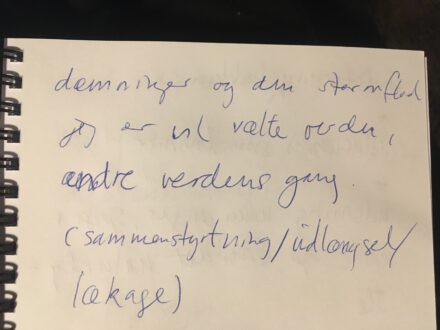 dæmninger og den stormflod
jeg er vil vælte verden,
ændre verdens gang.
(sammenstyrtning/udlængsel/
lækage)